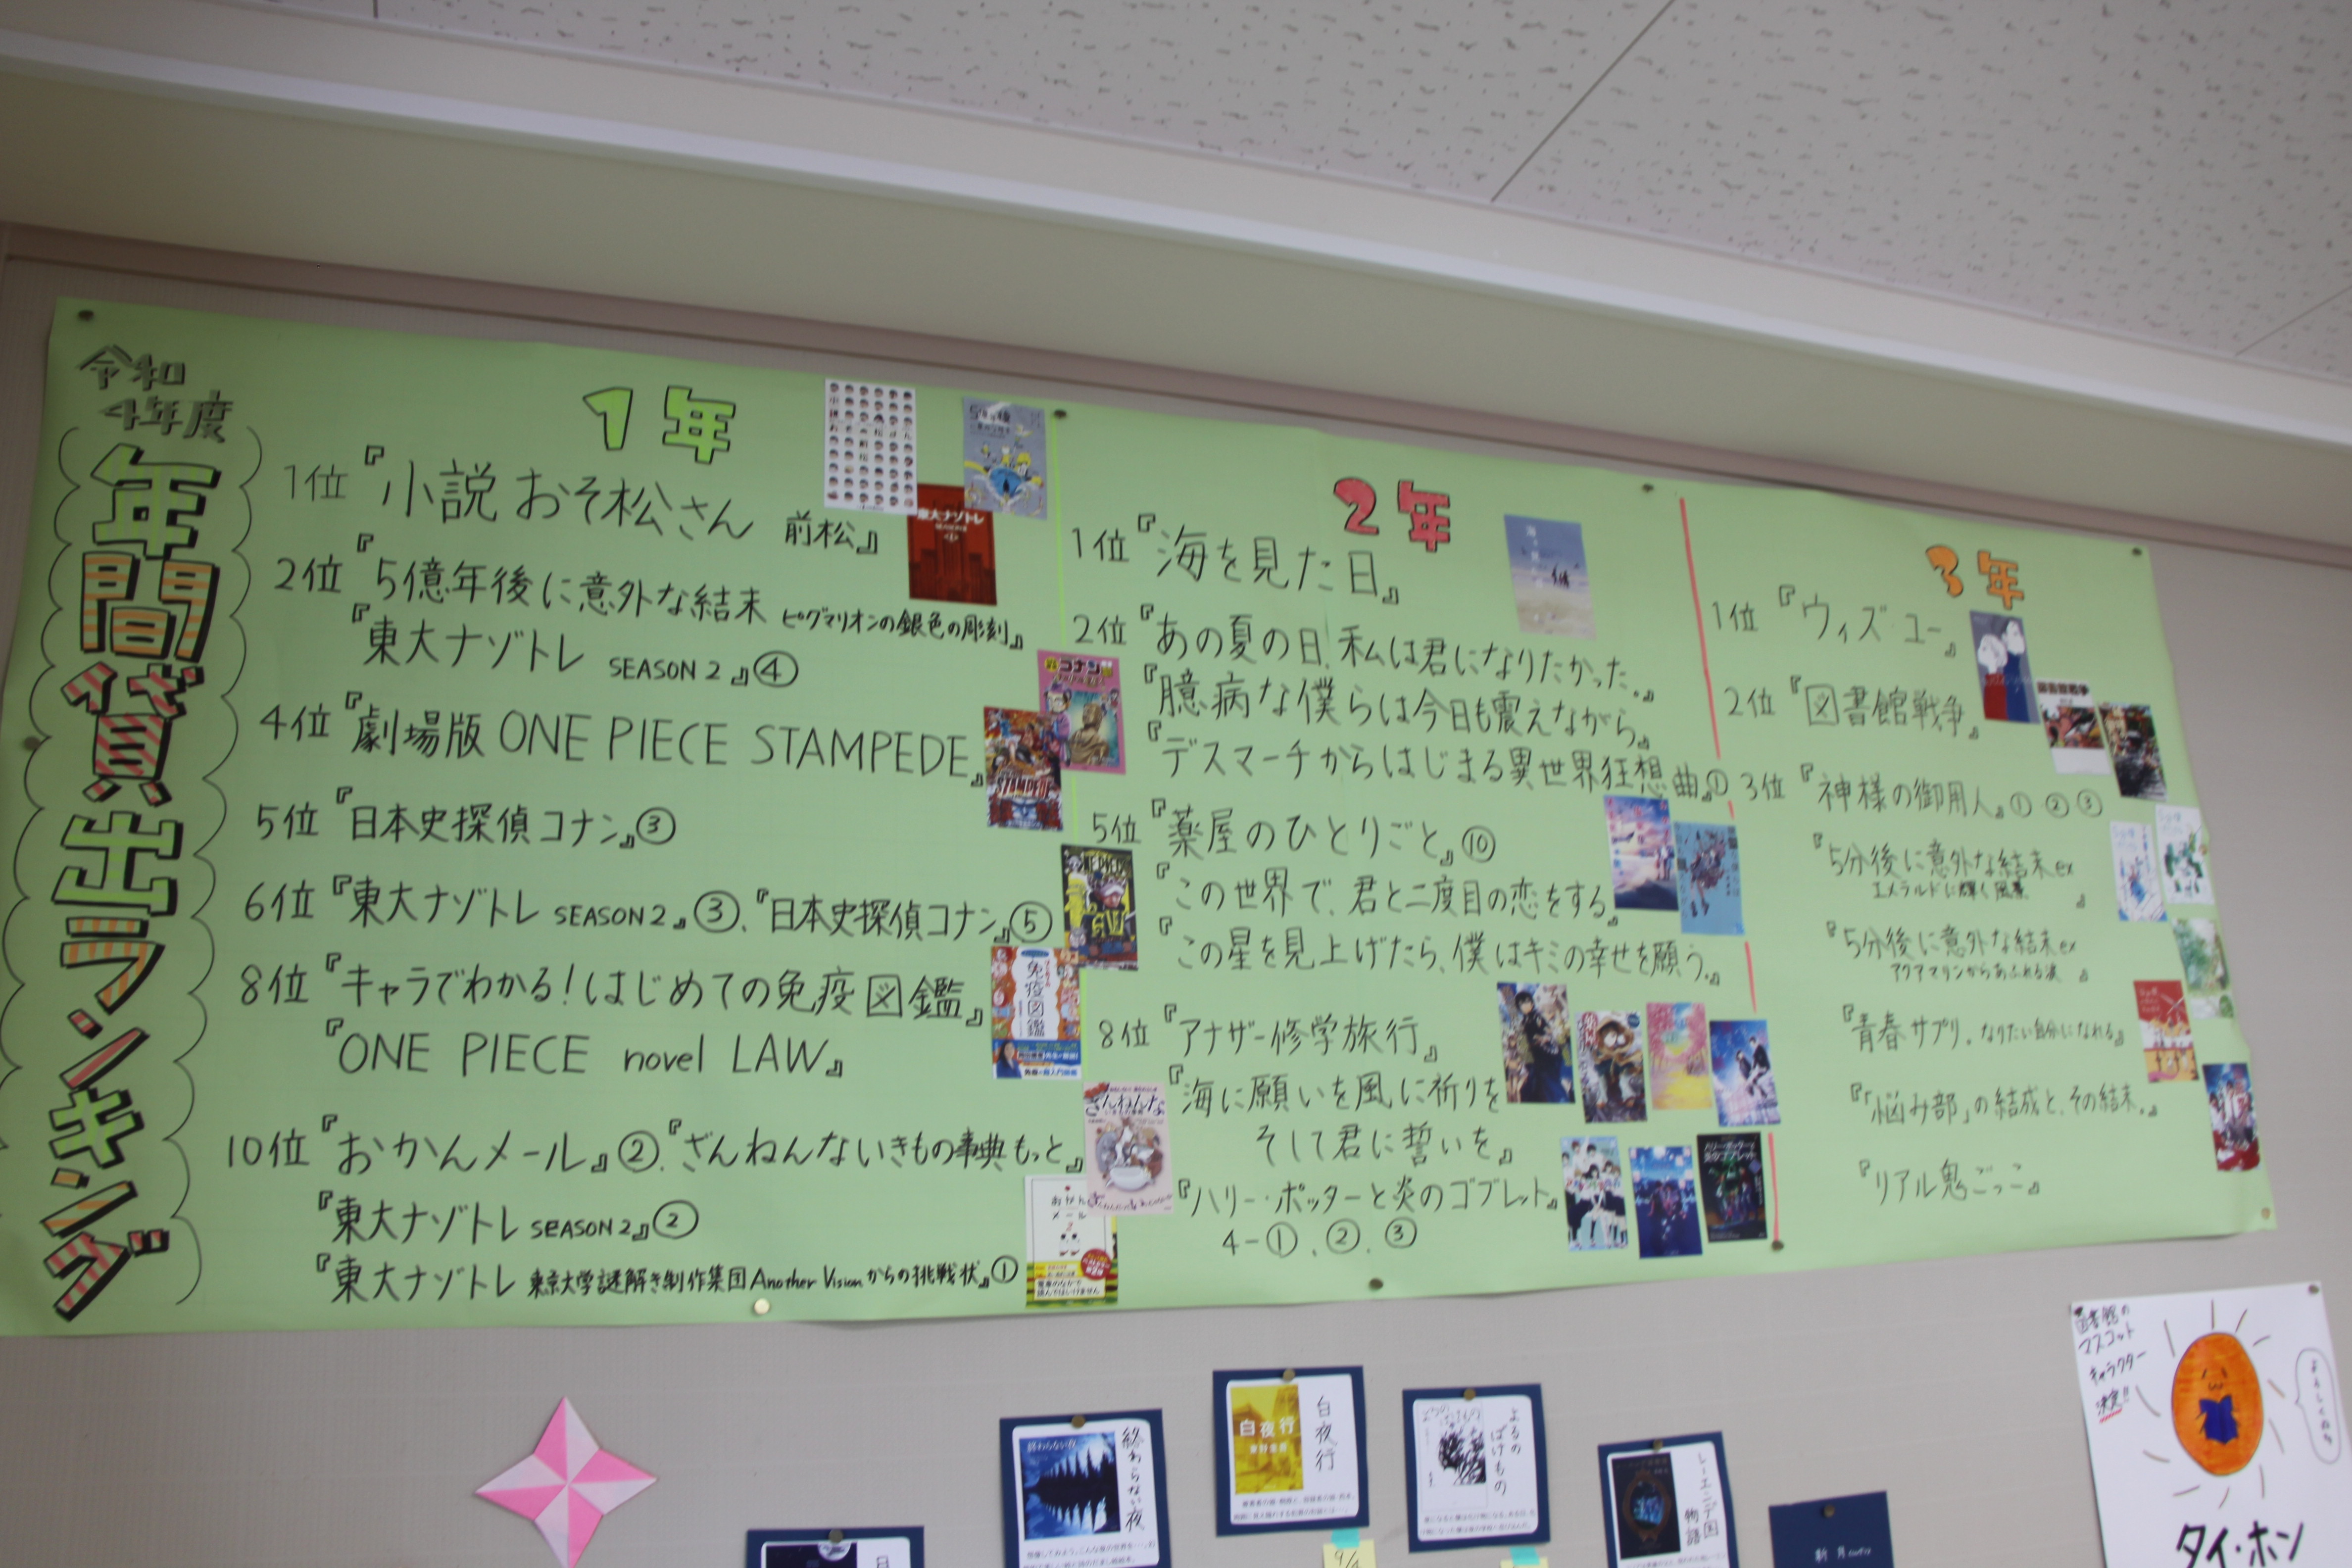 令和
4年度
年間貸出ランキング
1年
1位『小説 おそ松さん 前松』
2位『5億年後に意外な結末 ピグマリオンの銀色の彫刻』
『東大ナゾトレ SEASON 2』④
4位『劇場版 ONE PIECE STAMPEDE』
5位『日本史探偵コナン』③
6位『東大ナゾトレ SEASON 2』③、『日本史探偵コナン』⑤
8位『キャラでわかる!はじめての免疫図鑑』
『ONE PIECE novel LAW』
10位『おかんメール』②、『ざんねんないきもの事典 もっと』
『東大ナゾトレ SEASON 2』②
『東大ナゾトレ 東京大学謎解き制作集団 Another Visionからの挑戦状』①
2年
1位『海を見た日』
2位『あの夏の日、私は君になりたかった。』
『臆病な僕らは今日も震えながら』
『デスマーチからはじまる異世界狂想曲』①
5位『薬屋のひとりごと』⑩
『この世界で、君と二度目の恋をする』
『この星を見上げたら、僕はキミの幸せを願う。』
8位『アナザー修学旅行』
『海に願いを風に祈りを
そして君に誓いを』
『ハリー・ポッターと炎のゴブレット』
4-①、②、③
3年
1位『ウィズ・ユー』
2位『図書館戦争』
3位『神様の御用人』① ② ③
『5分後に意外な結末ex
エメラルドに輝く風景』
『5分後に意外な結末ex
アクアマリンからあふれる涙』
『青春サプリ。なりたい自分になれる』
『「悩み部」の結成と、その結末。』
『リアル鬼ごっこ』
東大ナゾトレ
コナン
STAMPEDE
免疫図鑑
ざんねんな
おかん
メール
終わらない夜
終わらない夜
白夜行
東野圭吾
白夜行
よるの
ばけもの
レーエンデ国
物語
新月
9/4
図書館の
マスコット
キャラクター
決定!!
よろしくね
タイ・ホン